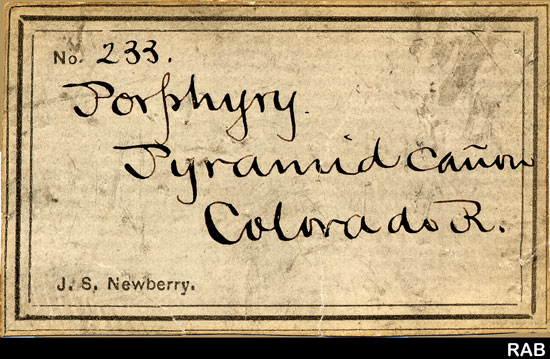 No. 233.
Porphyry.
Pyramid Cañon
Colorado R.
J. S. Newberry.
RAB